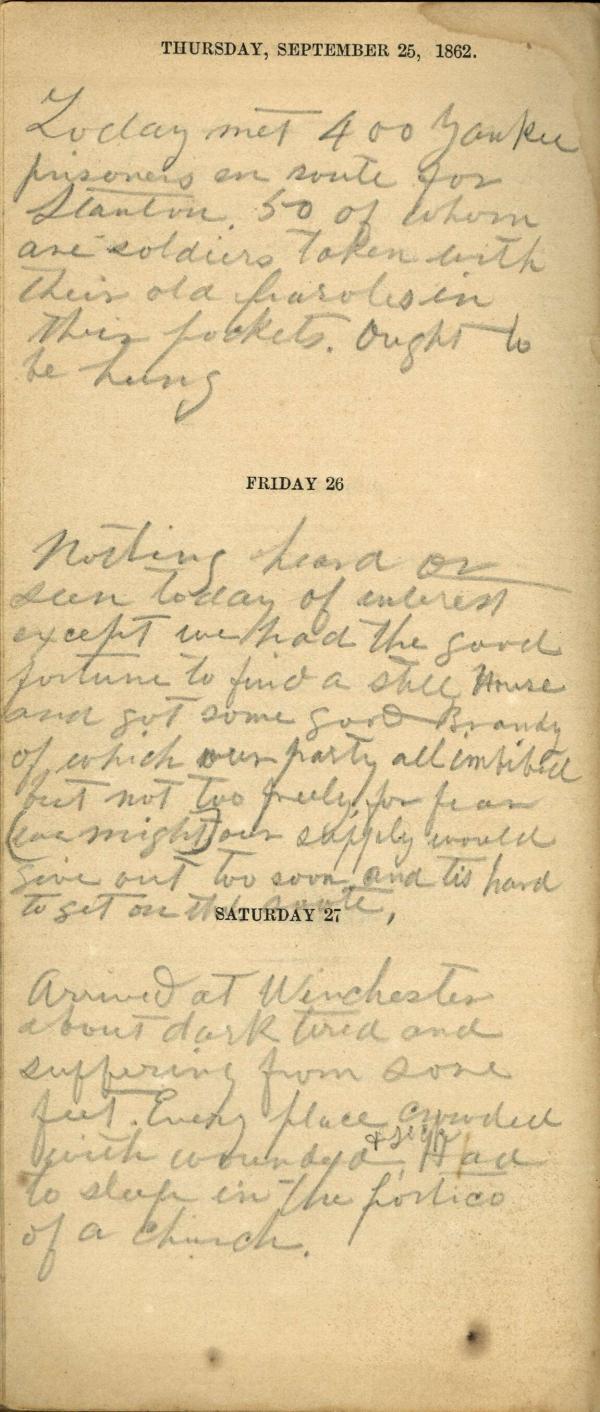 THURSDAY, SEPTEMBER 25, 1862.
Today met 400 Yankee
prisoners en route for
Stanton. 50 of whom
are soldiers taken with
their old paroles in
their pockets. Ought to
be hung
FRIDAY 26
Nothing heard or
seen today of interest
except we had the good
fortune to find a still House
and got some good Brandy
of which our party all imbibed
but not too freely, for fear
(we might) our supply would
give out too soon, and tis hard
to get on the route,
SATURDAY 27
Arrived at Winchester
about dark tired and
suffering from sore
feet. Every place crowded
with wounded & sick. Had
to sleep in the portico
of a church.